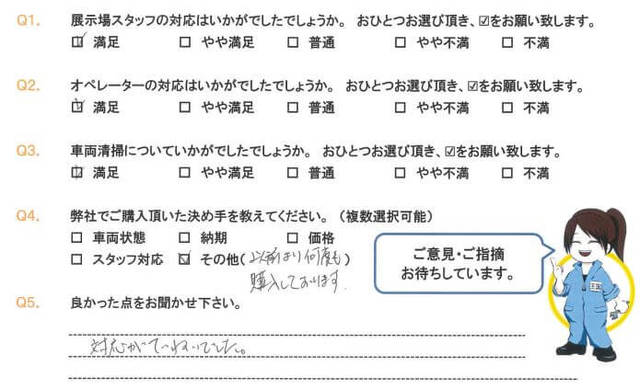 Q1. 展示場スタッフの対応はいかがでしたでしょうか。 おひとつお選び頂き、☑をお願い致します。
☑ 満足 □ やや満足 □ 普通 □ やや不満 □ 不満
Q2. オペレーターの対応はいかがでしたでしょうか。 おひとつお選び頂き、☑をお願い致します。
☑ 満足 □ やや満足 □ 普通 □ やや不満 □ 不満
Q3. 車両清掃についていかがでしたでしょうか。 おひとつお選び頂き、☑をお願い致します。
☑ 満足 □ やや満足 □ 普通 □ やや不満 □ 不満
Q4. 弊社でご購入頂いた決め手を教えてください。(複数選択可能)
□ 車両状態 □ 納期 □ 価格
□ スタッフ対応 ☑ その他(以前より何度も)
購入しております。
ご意見・ご指摘
お待ちしています。
Q5. 良かった点をお聞かせ下さい。
対応がていねいでした。